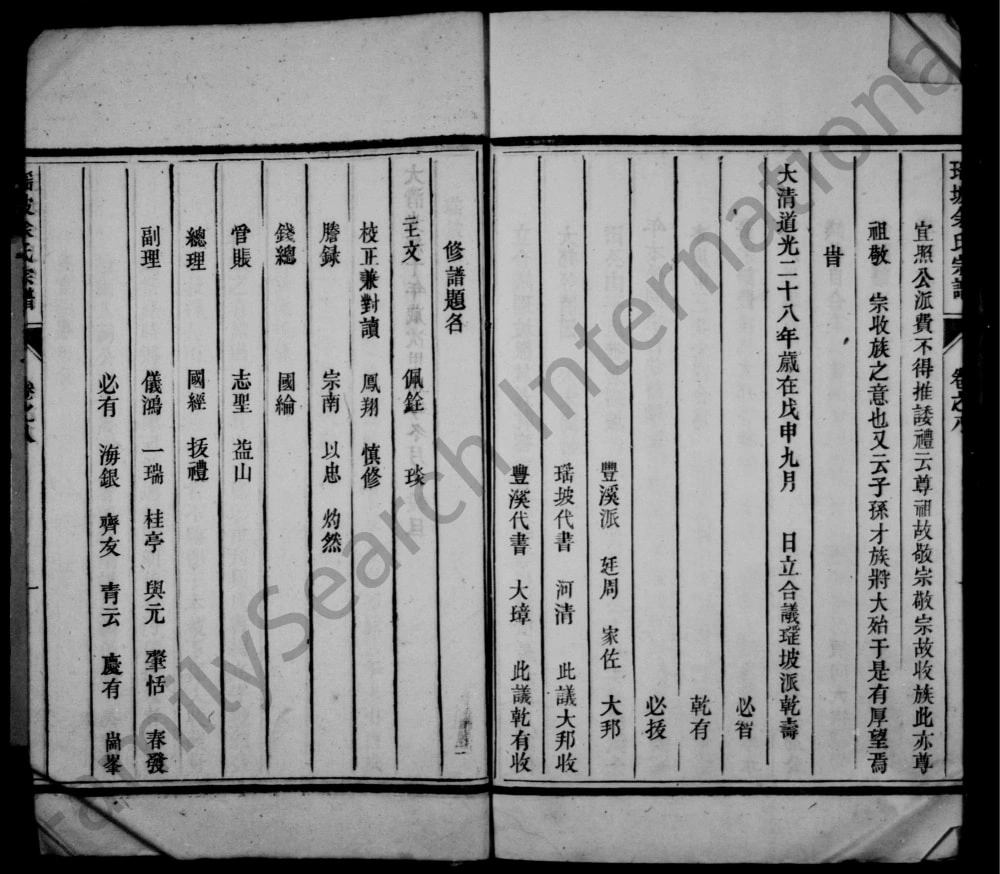 瑤坡余氏宗譜 卷之八
宜照公派費不得推諉禮云尊祖故敬宗敬宗故收族此亦尊
祖敬 宗收族之意也又云子孫才族將大殆于是有厚望焉
旹
大清道光二十八年歲在戊申九月 日立合議瑤坡派乾壽
必智
乾有
必援
豐溪派 廷周 家佐 大邦
瑤坡代書 河清 此議大邦收
豐溪代書 大璋 此議乾有收
修譜題名
主文 佩銓 琰
校正兼對讀 鳳翔 慎修
謄録 宗南 以忠 灼然
錢總 國綸
管賬 志聖 益山
總理 國經 援禮
副理 儀鴻 一瑞 桂亭 與元 肇恬 春發
必有 海銀 齊友 青云 慶有 崗峯
瑤坡余氏宗譜 卷之八 一
FamilySearch International